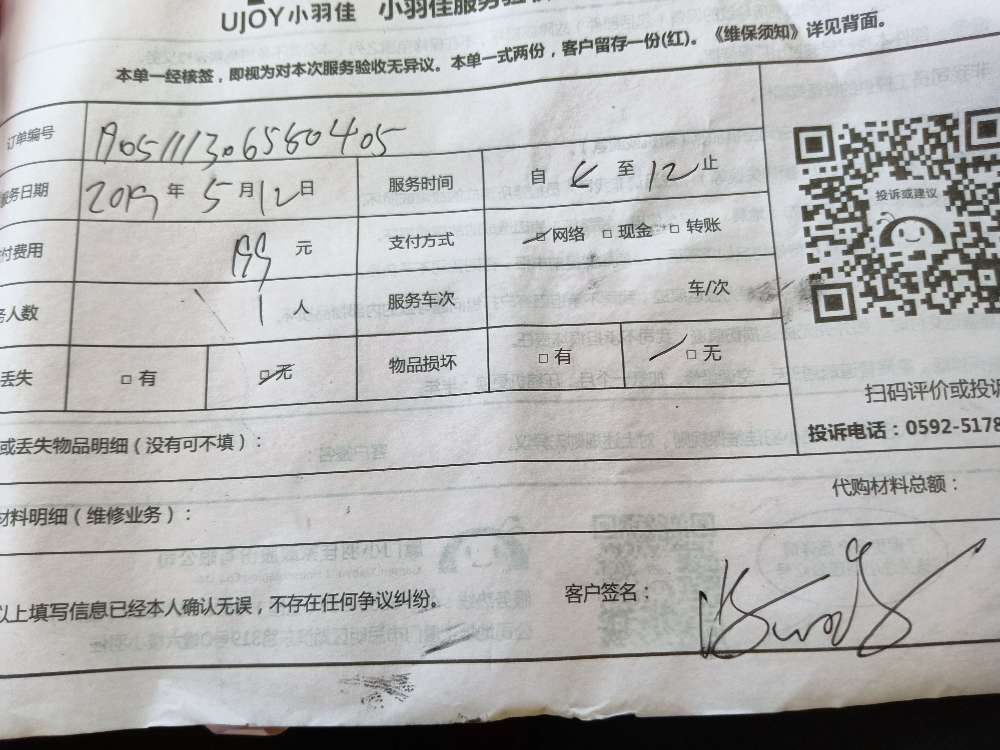 UJOY小羽佳 小羽佳服务验
本单一经核签，即视为对本次服务验收无异议。本单一式两份，客户留存一份(红)。《维保须知》详见背面。
订单编号 19051111306560405
服务日期 2019 年 5 月 12 日 服务时间 自 至 12 止
付费用 199 元 支付方式 □ 网络 □ 现金 □ 转账
务人数 1 人 服务车次 车/次
丢失 □ 有 □ 无 物品损坏 □ 有 □ 无
投诉或建议
扫码评价或投诉
投诉电话：0592-5178
或丢失物品明细（没有可不填）：
代购材料总额：
材料明细（维修业务）：
以上填写信息已经本人确认无误，不存在任何争议纠纷。
客户签名：